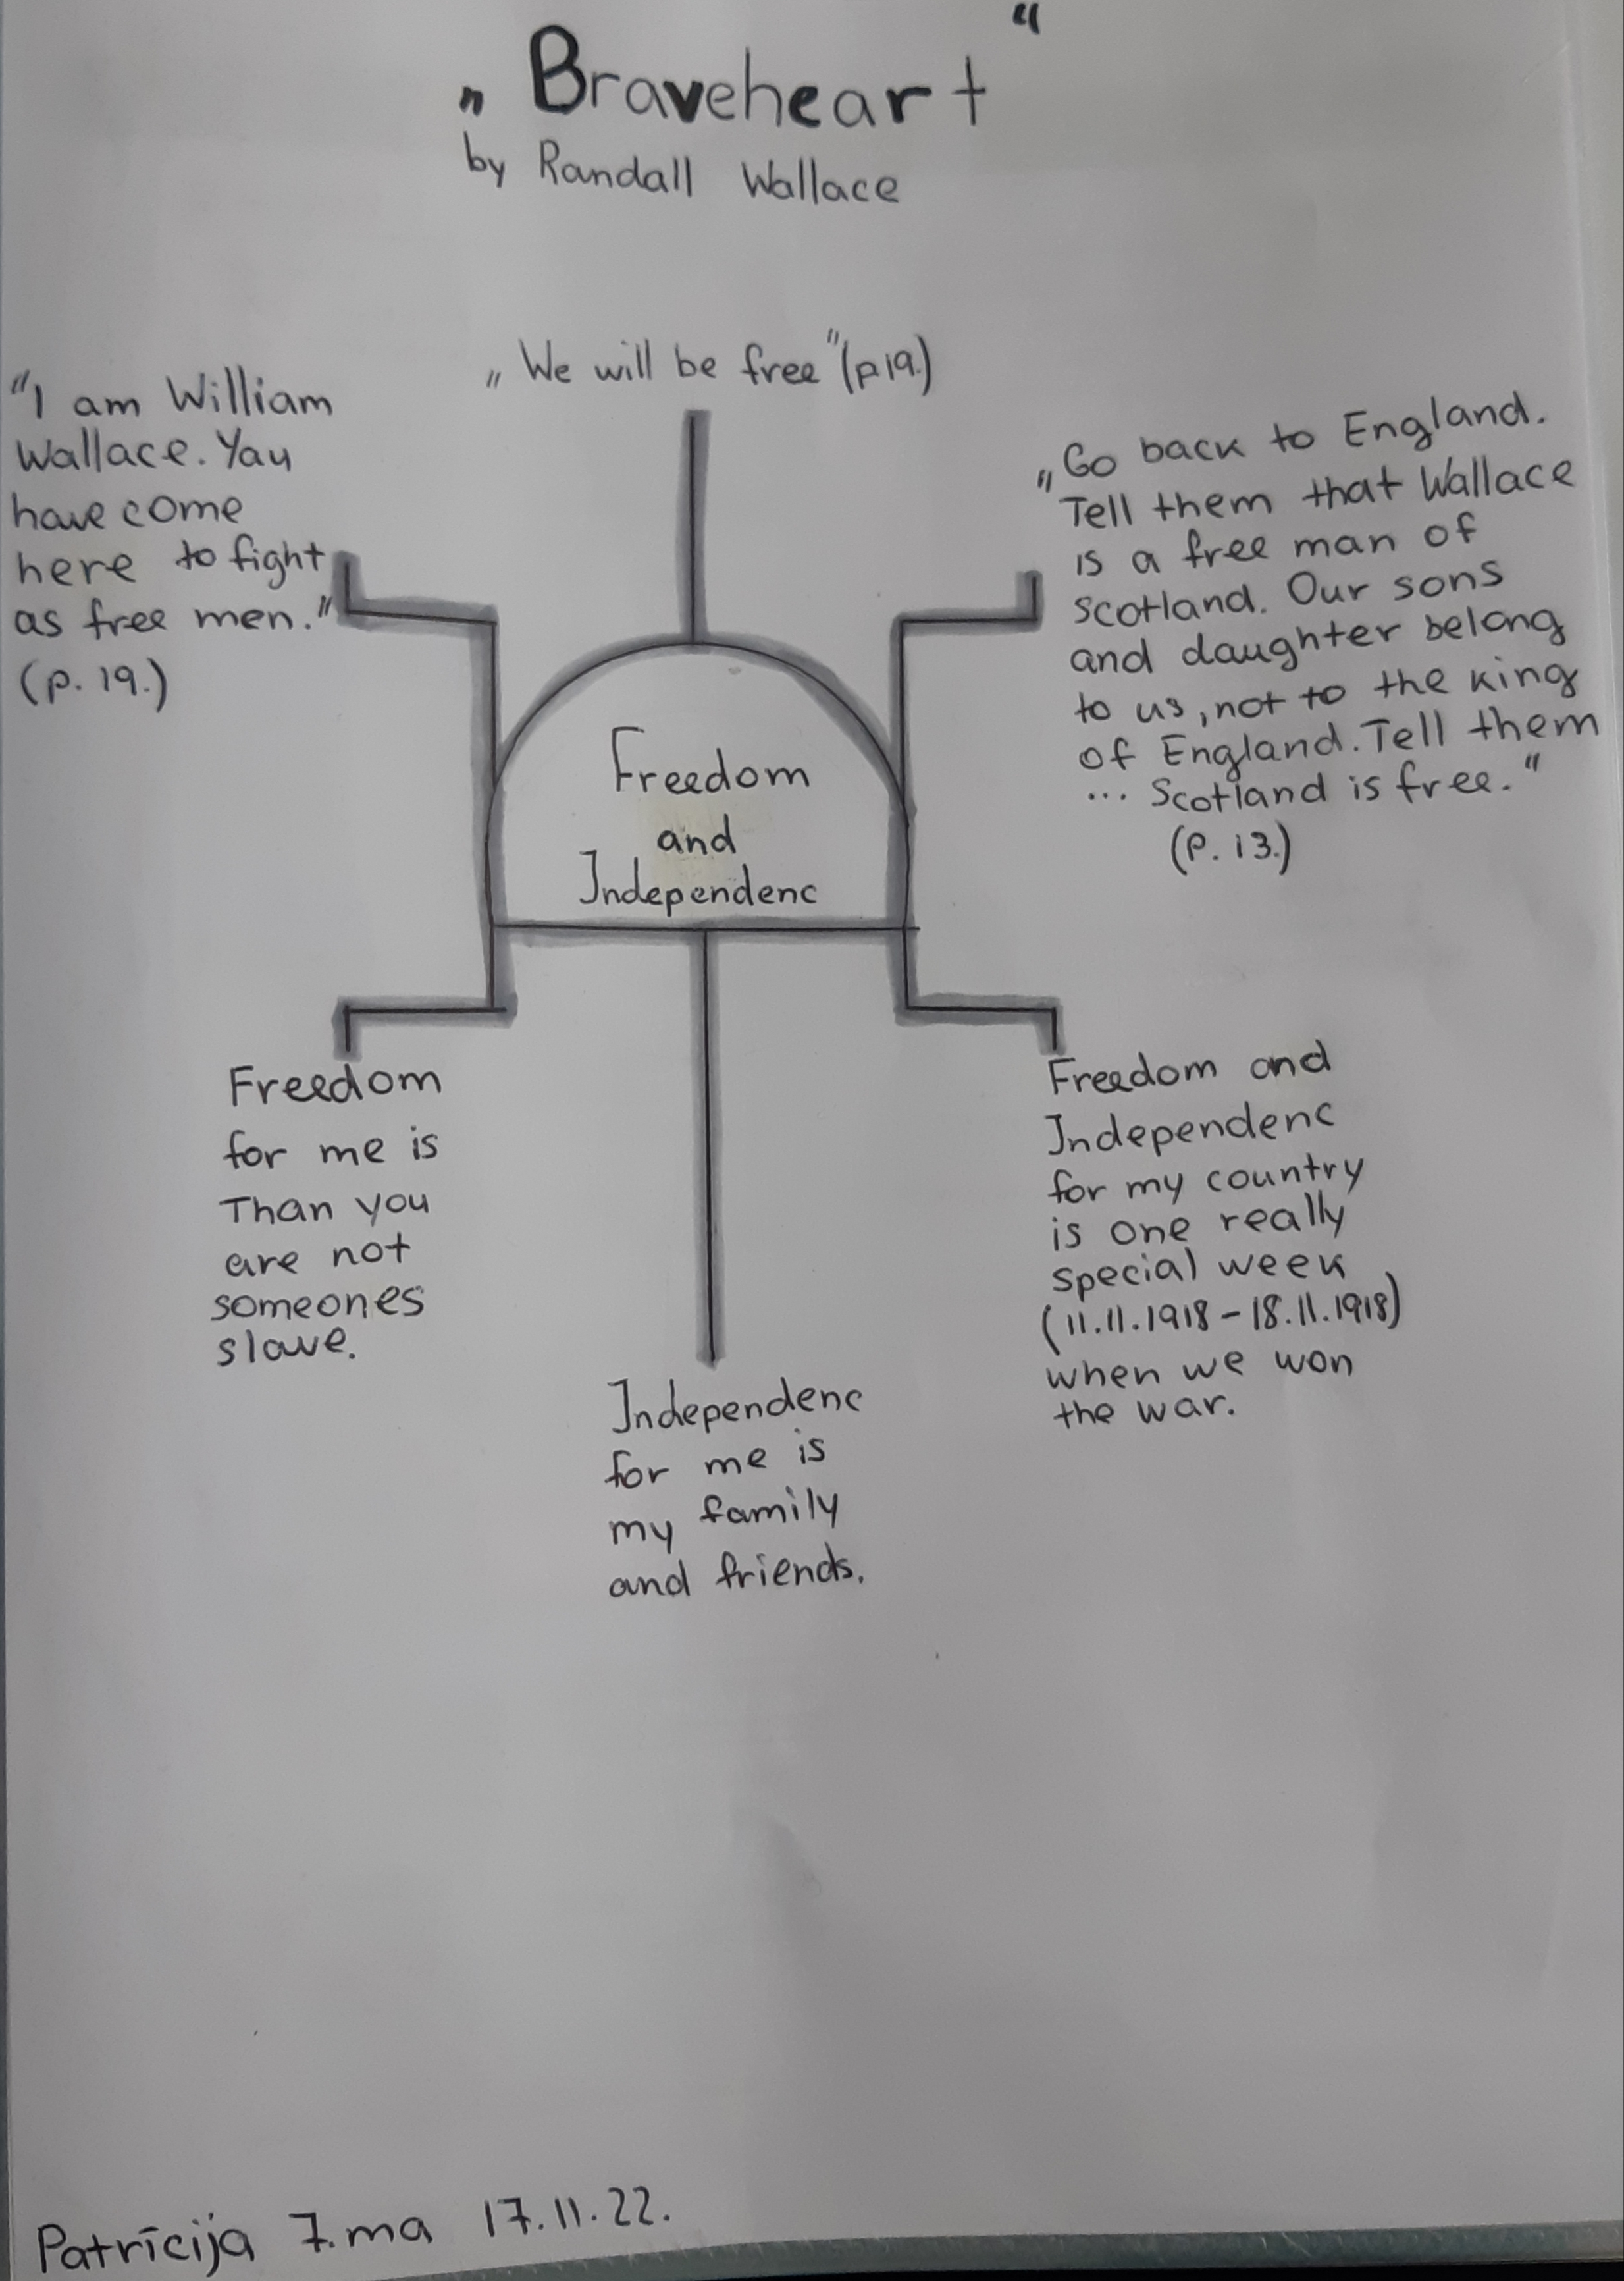 „Braveheart“
by Randall Wallace
„We will be free"(p19.)
"I am William
Wallace. Yau
have come
here to fight
as free men."
(p. 19.)
„Go back to England.
Tell them that Wallace
is a free man of
Scotland. Our sons
and daughter belong
to us, not to the king
of England. Tell them
... Scotland is free."
(P. 13.)
Freedom
and
Independenc
Freedom
for me is
Than you
are not
someones
slave.
Independenc
for me is
my family
and friends.
Freedom and
Independenc
for my country
is one really
special week
(11.11.1918 - 18.11.1918)
when we won
the war.
Patrīcija 7.ma 17.11.22.